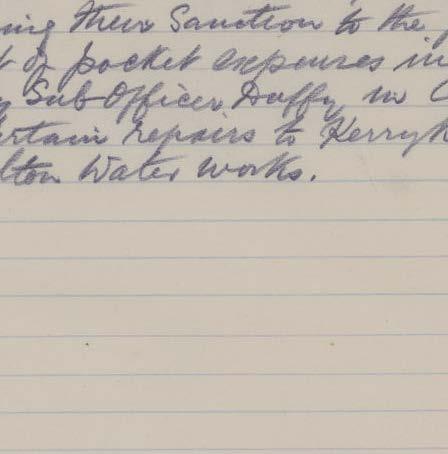 ing their Sanction to the
t of pocket expenses in
y Sub-Officer Duffy in C
ertain repairs to Kerryk
lton Water works.